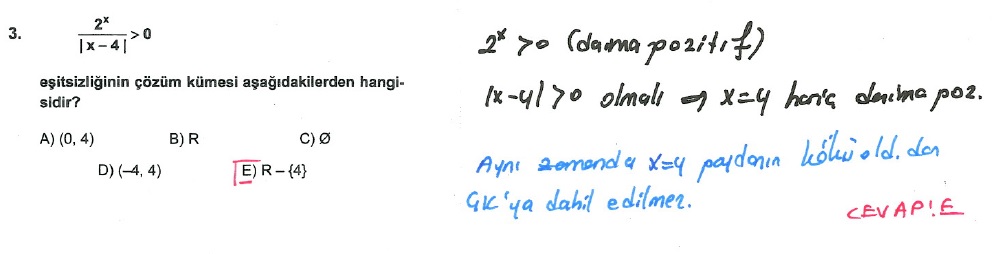 3. 2ˣ / |x – 4| > 0
eşitsizliğinin çözüm kümesi aşağıdakilerden hangi-
sidir?
A) (0, 4) B) R C) Ø
D) (–4, 4) E) R – {4}
2ˣ > 0 (daima pozitif)
|x-4| > 0 olmalı → x=4 hariç daima poz.
Aynı zamanda x=4 paydanın kökü old. dan
ÇK'ya dahil edilmez.
CEVAP: E